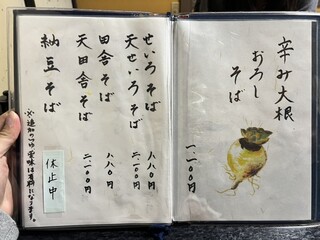 辛み大根
おろし
そば
一、一〇〇円
せいろそば 八八〇円
天せいろそば 二、一〇〇円
田舎そば 八八〇円
天田舎そば 二、一〇〇円
納豆そば 休止中
※追加のつゆ・薬味は有料になります。